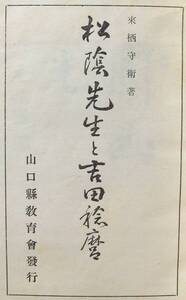 來栖守衛著
松陰先生と吉田稔麿
山口縣敎育會發行